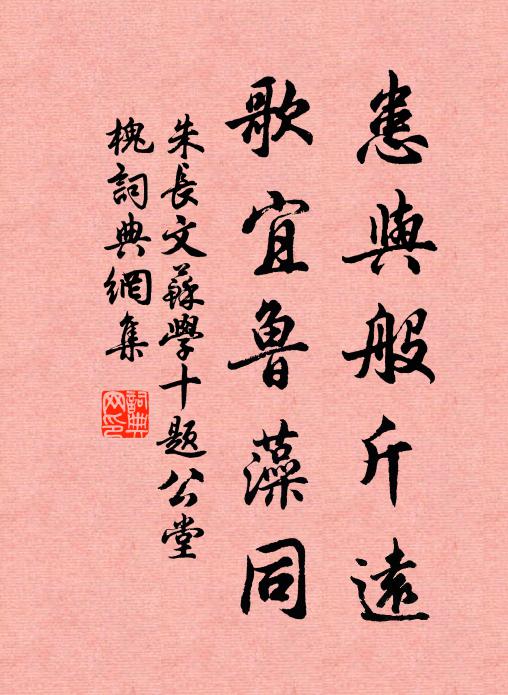 患與般斤遠
歌宜魯藻同
朱長文蘇學十題公堂
槐詞典網集
詞典網印